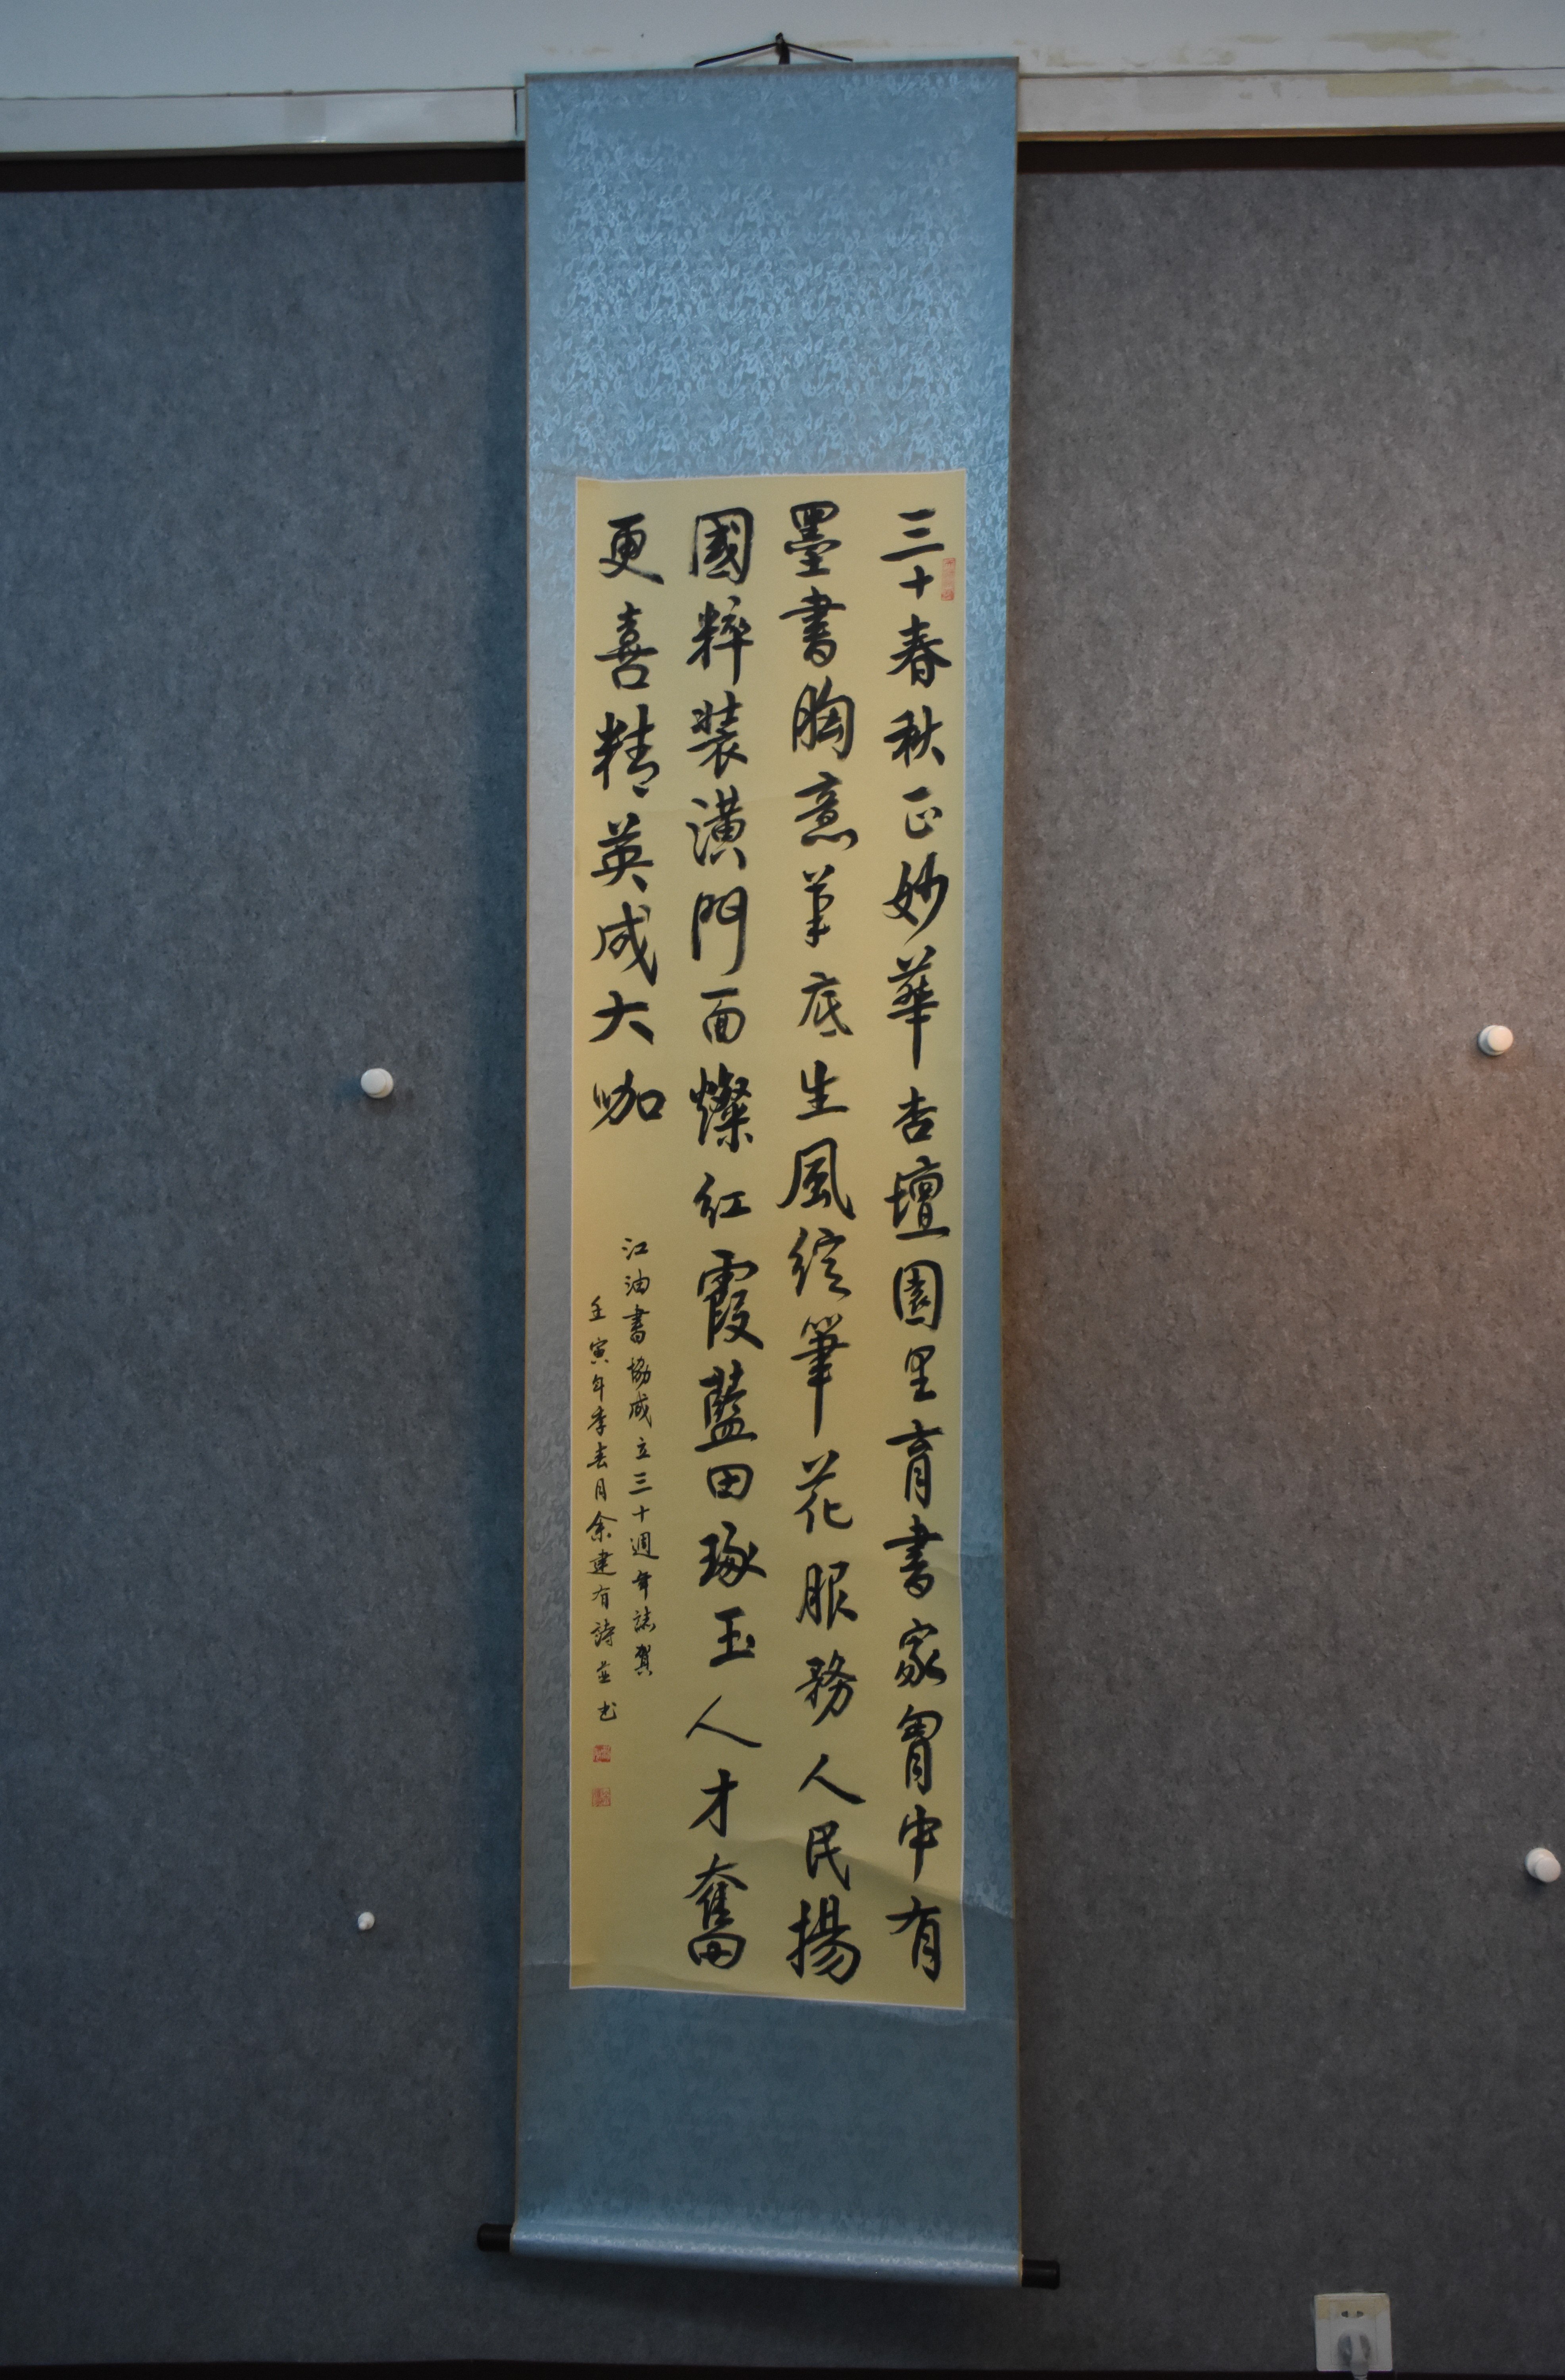 三十春秋正妙華杏壇園里育書家胷中有
墨書胸意筆底生風綻筆花服務人民揚
國粹裝潢門面燦紅霞藍田琢玉人才奮
更喜精英成大咖
江油書協成立三十週年誌賀
壬寅年季春月余建有詩並书